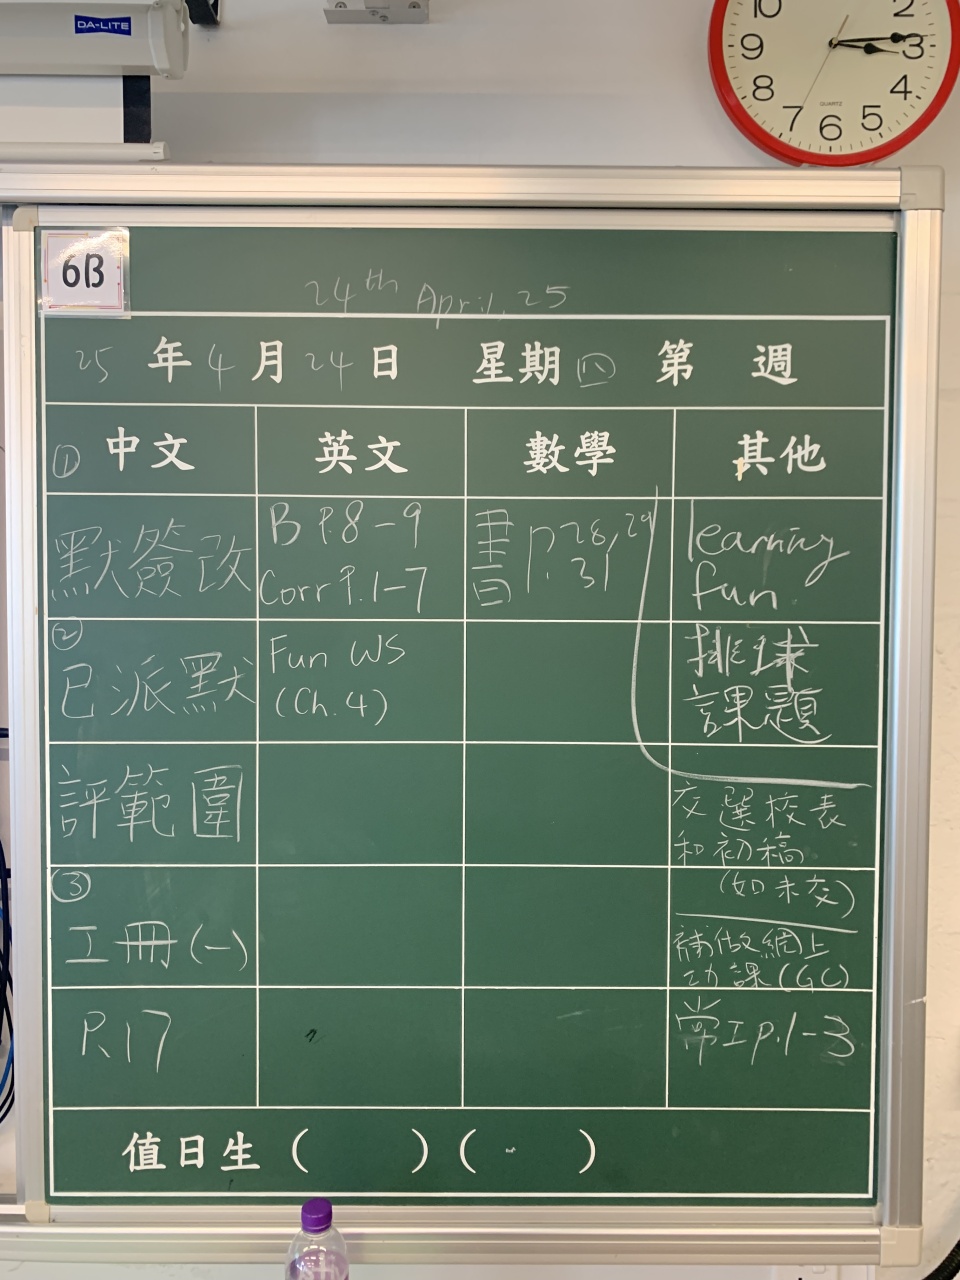 DA-LITE
10
2
9
3
8
4
7
6
5
QUARTZ
6B
24th April, 25
25 年 4 月 24 日 星期 四 第 週
① 中文
英文
數學
其他
默簽改
B P.8-9
Corr P.1-7
書 P.28,29
P.31
learning
fun
②
已派默
Fun WS
(Ch.4)
排球
課題
評範圍
交選校表
和初稿
(如未交)
③
工冊(一)
補做網上
功課(GC)
P.17
常工p.1-3
值日生 ( ) ( )